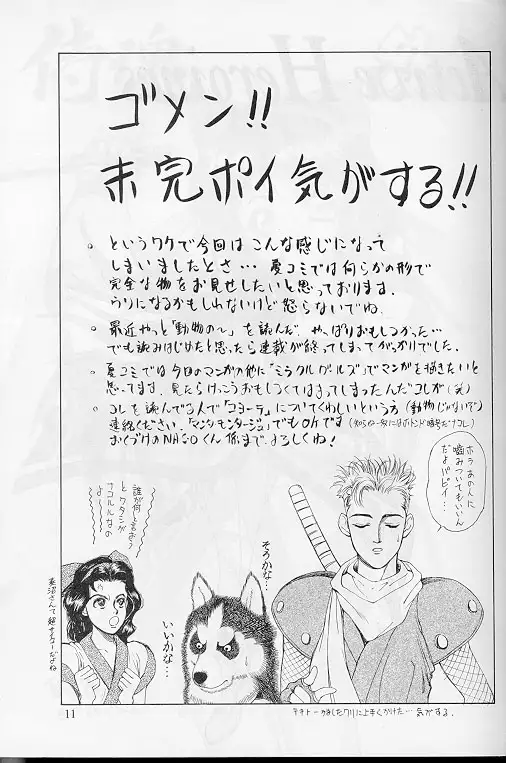 ゴメン!!
未完ポイ気がする!!
。というワケで今回はこんな感じになって
しまいましたとさ… 夏コミでは何らかの形で
完全な物をお見せしたいと思っております.
ウソになるかもしれないけど怒らないでね.
。最近やっと「動物の〜」を読んだ. やっぱりおもしろかった…
でも読みはじめたと思ったら連載が終ってしまってがっかりでした.
。夏コミでは今回のマンガの他に「ミラクルガールズ」でマンガを描きたいと
思ってます. 見たらけっこうおもしろくてはまってしまったんだコレが(笑)
。コレを読んでる人で「コヨーテ」についてくわしいという方(動物じゃないぞ)
連絡ください.「マンタンモンタージュ」でもOKです
おくづけのNASOくん係まで.よろしくね!
ホラあの人に
噛みついてもいいん
だよパピィ…
誰が何と言おう
とワタシが
ナコルルなの
よ〜
そうかな…
いいかな…
11